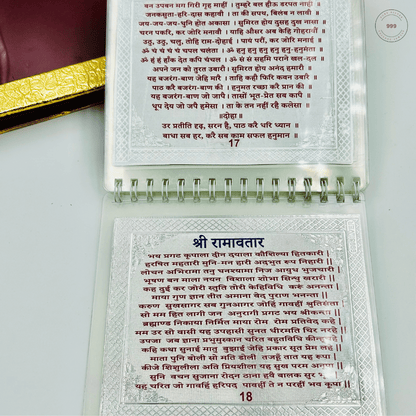 999
बन उपबन मग गिरी गृह माहीं । तुम्हरे बल हीऊ डरपत नाहीं
जनकसुता-हरि-दास कहावौ । ता की सपथ, बिलंब न लावौ ।
जय-जय-जय-धुनि होत अकासा । सुमिरत होय दुसह दुख नासा
चरन पकरि, कर जोरि मनावौं । याहि औसर अब केहि गोहरावौं
उठु, उठु, चलु, तोहि राम-दोहाई । पायं परौं, कर जोरि मनाई ॥
ॐ चं चं चं चं चपल चलंता । ॐ हनु हनु हनु हनु हनु-हनुमंता
ॐ हं हं हाँक देत कपि चंचल । ॐ सं सं सहमि पराने खल-दल
अपने जन को तुरत उबारौ । सुमिरत होय अनंद हमारौ ॥
यह बजरंग-बाण जेहि मारै । ताहि कहौ फिरि कवन उबारै ॥
पाठ करै बजरंग-बाण की । हनुमत रच्छा करै प्रान की ॥
यह बजरंग-बाण जो जापैं । तासों भूत-प्रेत सब कापैं ॥
धूप देय जो जपै हमेसा । ता के तन नहीं रहै कलेसा ॥
॥दोहा॥
उर प्रतीति दृढ़, सरन है, पाठ करै धरि ध्यान ।
बाधा सब हर, करैं सब काम सफल हनुमान ॥
17
श्री रामावतार
भय प्रगट कृपाला दीन दयाला कौशिल्या हितकारी |
हरषित महतारी मुनि-मन हारी अदभुत रूप निहारी ||
लोचन अभिरामा तनु घनश्यामा निज आयुध भुजचारी |
भूषण बन माला नयन विशाला शोभा सिन्धु खरारी ||
कह दुई कर जोरी स्तुति तोरी केहिविधि करूं अनन्ता
माया गुण ज्ञान तीत अमाना वेद पुराण भनन्ता ||
करुणा सुखसागर सब गुनआगर जोहि गावहीं श्रुतिसंता
सो मम हित लागी जन अनुरागी प्रगट भय श्रीकन्ता
ब्रह्माण्ड निकाया निर्मित माया रोम रोम प्रतिवेद कहै
मम उर सो वासी यह उपहासी सुनत धीरमति थिर नरहै
उपजा जब ज्ञाना प्रभुमुस्काना चरित बहुतविधि कीन्ह चहै
कहि कथा सुनाई मातु बुझाई जेहि प्रकार सुत प्रेम लहै
माता पुनि बोली सो मति डोली तजहूँ तात यह रूपा |
कीजे शिशुलीला अति प्रियशीला यह सुख परम अनूपा
सुनि वचन सुजाना रोदन ठाना हुवै बालक सुर
यह चरित जो गावहिं हरिपद पावहीं ते न परहीं भव कूपा ||
18